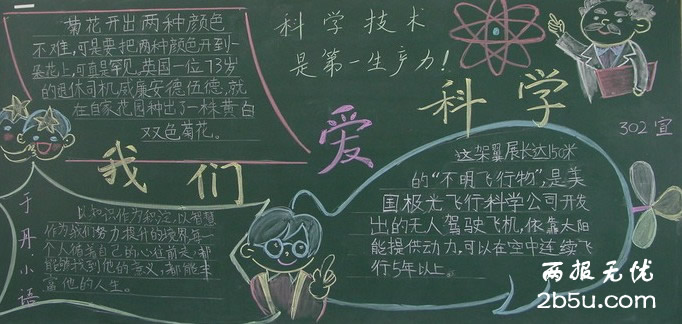 菊花开出两种颜色
不难,可是要把两种颜色开到一
朵花上,可真是罕见,英国一位73岁
的退休司机威廉安德伍德,就
在自家花园种出了一株黄白
双色菊花。
科学技术
是第一生产力!
我们爱科学
302宣
这架翼展长达150米
的“不明飞行物”,是美
国极光飞行科学公司开发
出的无人驾驶飞机,依靠太阳
能提供动力,可以在空中连续飞
行5年以上。
于丹·小语
以知识作为积淀,以智慧
作为我们努力提升的境界,每一
个人循着自己的心往前走,都
能够找到他的意义,都能丰
富他的人生。
两报无忧
2b5u.com